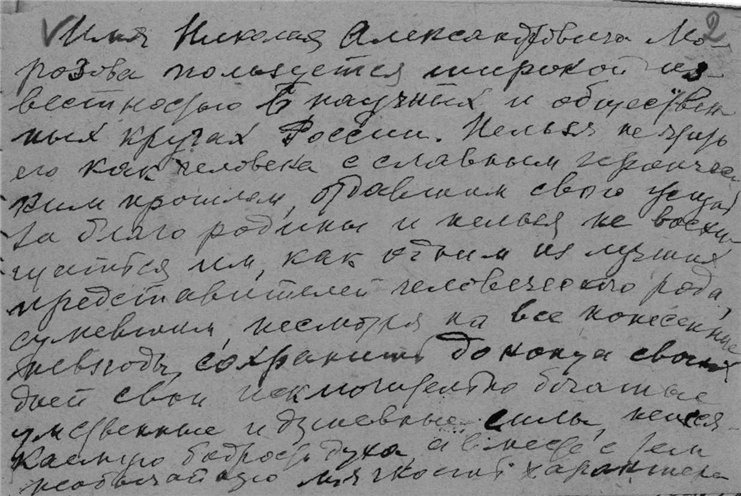 2
Имя Николая Александровича Мо-
розова пользуется широкой из-
вестностью в научных и обществен
ных кругах России. Нельзя не чтить
его как человека с славным героичес
ким прошлым, отдавшим свою
за благо родины и нельзя не восхи-
щаться им, как одним из лучших
представителей человеческого рода,
сумевшим, несмотря на все понесенные
невзгоды, сохранить до конца своих
дней свои исключительно богатые
умственные и душевные силы, неисся-
каемую бодрость духа, а вместе с тем
необычайную мягкость характера